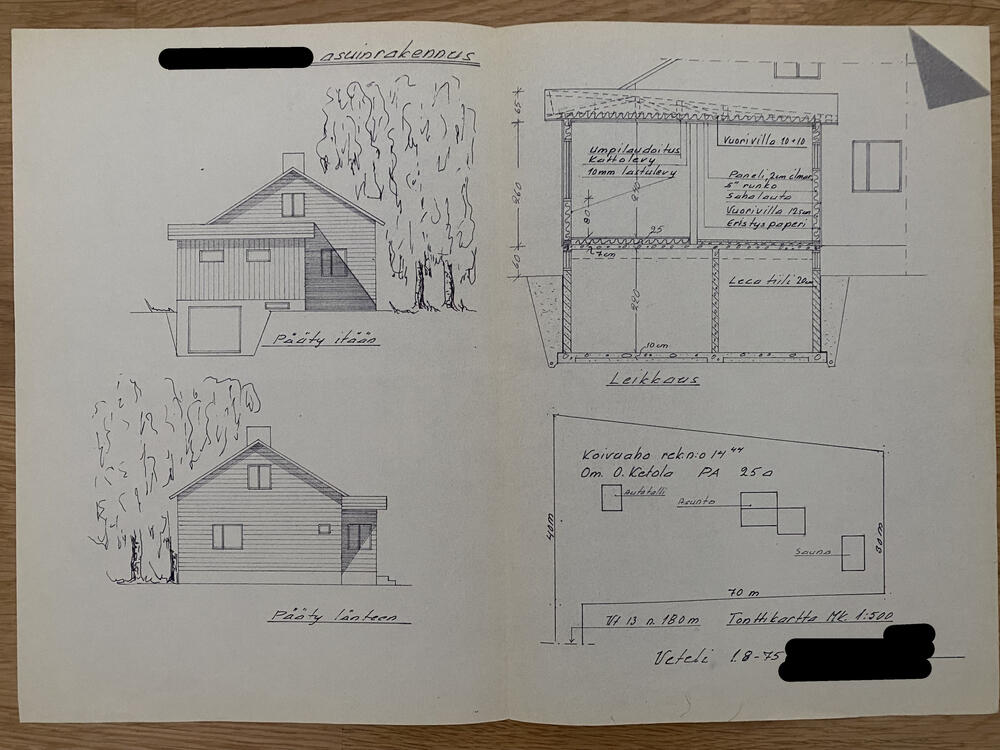 asuinrakennus
Pääty itään
Pääty länteen
65
260
60
Umpilaudoitus
Kattolevy
10mm lastulevy
Vuorivilla 10+10
Paneli, 2cm ilmar.
5" runko
Sahalauta
Vuorivilla 12cm
Eristyspaperi
80
240
25
27cm
Leca tiili 20cm
220
10 cm
Leikkaus
Koivuaho rekn:o 14⁴⁴
Om. O. Ketola PA 250
Autotalli
Asunto
Sauna
40m
30m
70 m
Vt 13 n. 180 m
Tonttikartta Mk. 1:500
Veteli 1.8-75